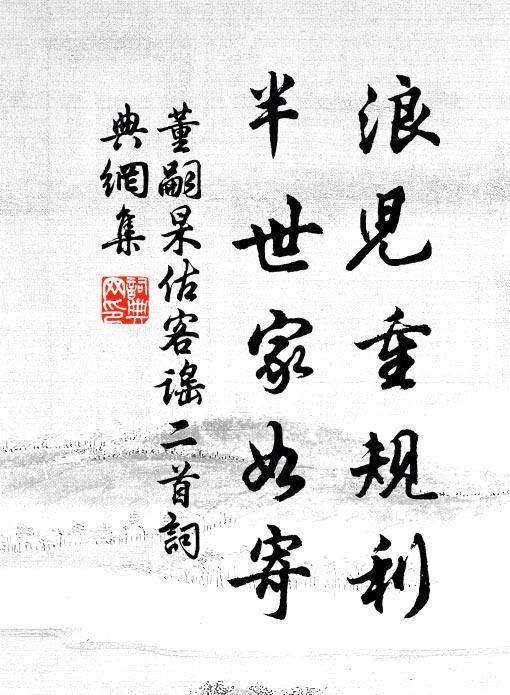 浪兒重規利
半世家如寄
董嗣杲估客謠二首詞
典網集
詞典
网印